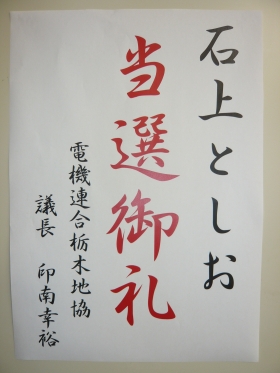 石上としお
当選御礼
電機連合栃木地協
議長 印南幸裕